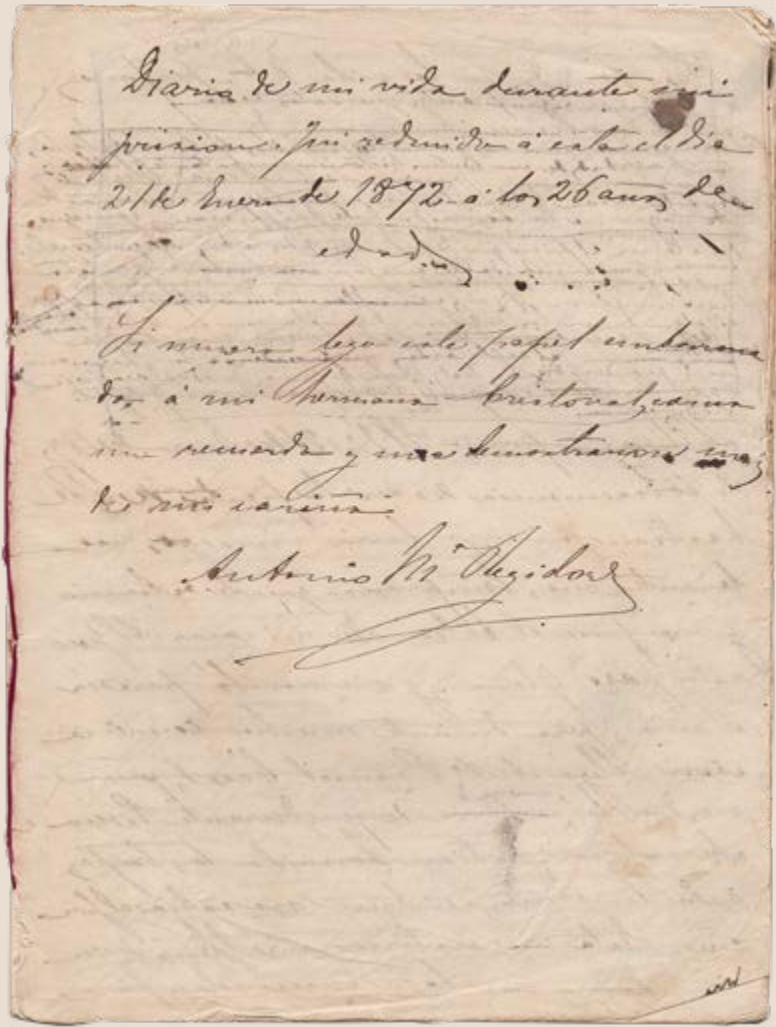 Diario de mi vida durante mi
prision. Fui reducido á esta el dia
21 de Enero de 1872 á los 26 años de
edad.
Si muero lego este papel emborrona
do á mi hermano Cristoval, como
un recuerdo y una demostracion mas
de mi cariño.
Antonio Mª Regidor